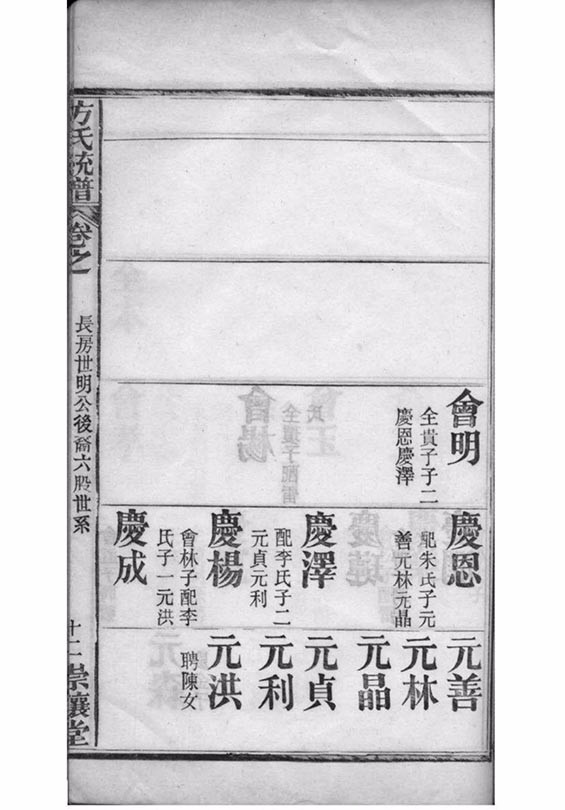 會明
全貴子子二
慶恩慶澤
慶恩
配朱氏子元
善元林元晶
慶澤
配李氏子二
元貞元利
慶楊
會林子配李
氏子一元洪
慶成
元善
元林
元晶
元貞
元利
元洪
聘陳女
方氏統譜
卷之
長房世明公後裔六股世系
十二
崇讓堂